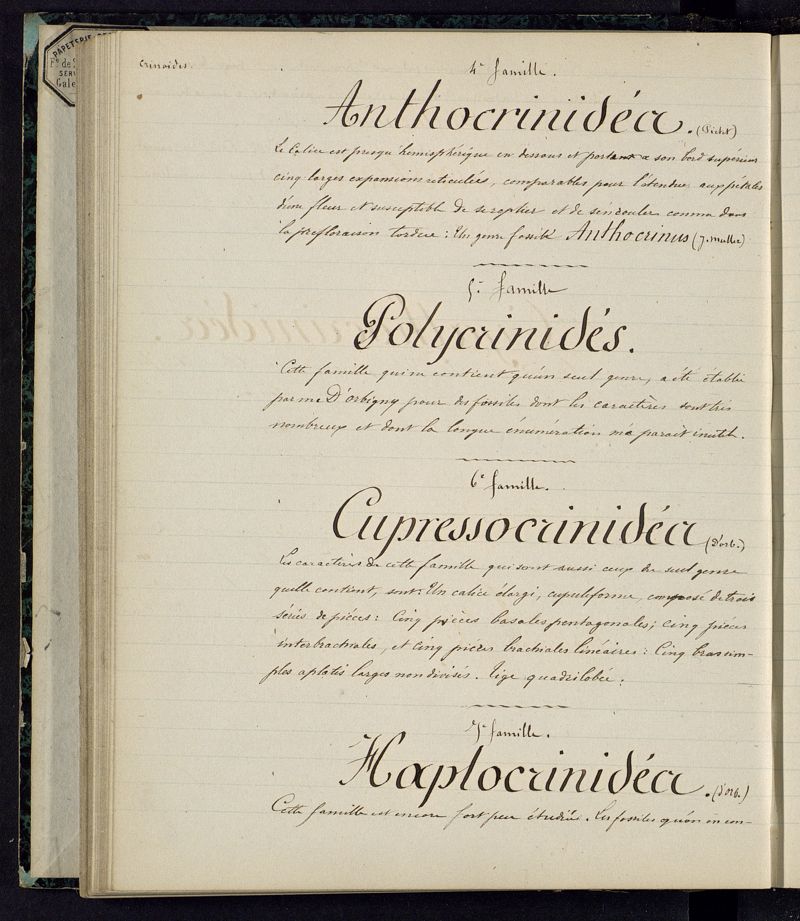 PAPETERIE
crinoides.
4e famille.
Anthocrinidéa. (Pictet)
Le Calice est presqu'hemisphérique en dessous et portant a son bord supérieur
cinq larges expansions reticulées, comparables pour l'étendue aux pétales
d'une fleur et susceptible de se replier et de s'enrouler comme dans
la prefloraison tordue : Un genre fossile Anthocrinus (J. Muller)
5e famille
Polycrinidés.
Cette famille qui ne contient qu'un seul genre, a été établie
par mr D'Orbigny pour des fossiles dont les caractères sont très
nombreux et dont la longue énumération m'a parait inutile.
6e famille.
Cupressocrinidéa (D'orb.)
Les caractères de cette famille qui sont aussi ceux du seul genre
quelle contient, sont: Un calice élargi, cupuliforme, composé de trois
séries de pièces : Cinq pièces basales pentagonales; cinq pièces
interbrachiales, et cinq pièces brachiales linéaires : Cinq bras sim-
ples aplatis larges non divisés. Tige quadrilobée.
7e famille.
Haplocrinidéa. (D'orb.)
Cette famille est encore fort peu étudiée. Les fossiles qu'on en con-